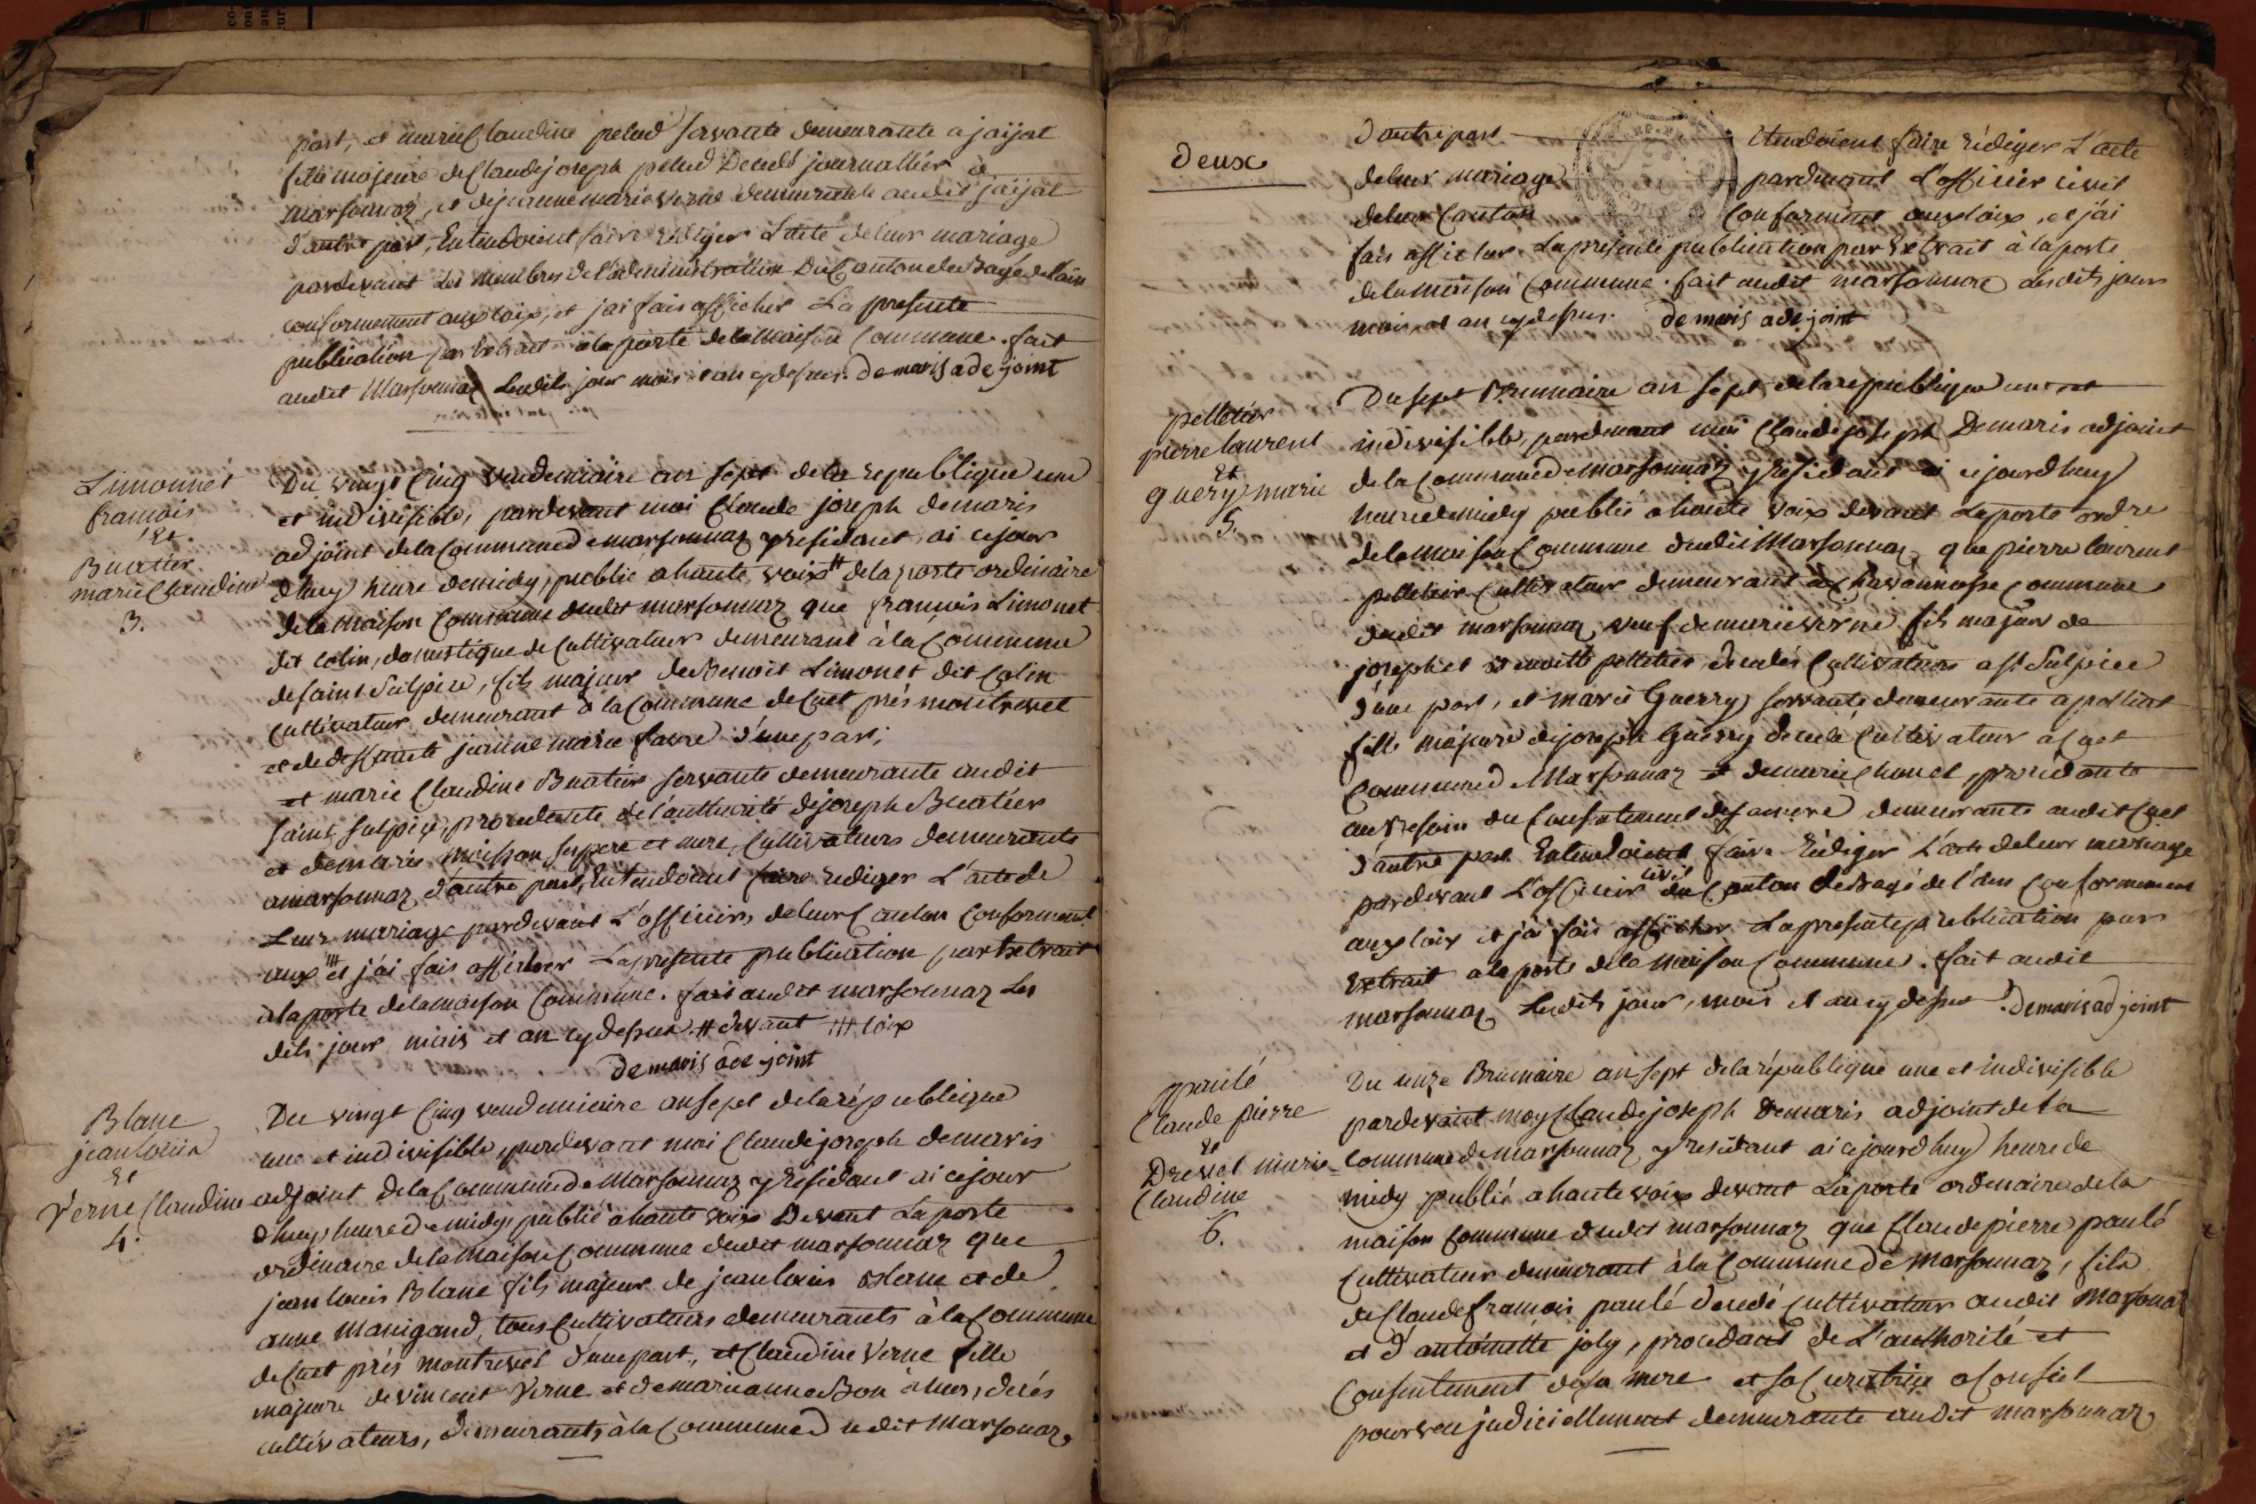 part, et marie Claudine pelud servante demeurante a jaÿat
fille majeure de Claude joseph pelud Decedé journallier a
marsonnaz, et de jeanne marie verne demeurante audit jaÿat
d'autre part, Entendoient faire rédiger L'acte de leur mariage
pardevant Les Membres de l'administration Du Canton de Bagé de l'ain
conformement aux loix, et j'ai fais afficher La presente
publication par Extrait a la porte de la Maison Commune. fait
audit Marsonnaz Lesdits jour mois et an cy dessus. Demaris adejoint
Limonnet
françois
Et
Buatier
marie Claudine
3.
Du vingt Cinq Vendemiaire an sept de la republique une
et indivisible, pardevant moi Claude joseph demaris
adjoint de la Commune de marsonnaz y residant, ai cejour
d'huy heure de midy, publié a haute voix # de la porte ordinaire
de la Maison Commune dudit marsonnaz que françois Limonet
dit Colin, domestique de Cultivateur demeurant à la Commune
de saint Sulpice, fils majeur de Benoit Limonet dit Colin
Cultivateur demeurant à la Commune de Cuet près montrevel
et de deffunte jeanne marie favre d'une part,
et marie Claudine Buatier servante demeurante audit
saint Sulpice, procedente de l'authorité de joseph Buatier
et de marie Moisson, ses pere et mere, Cultivateurs demeurants
a marsonnaz d'autre part, Entendoient faire rediger L'acte de
Leur mariage pardevant L'officier, de leur Canton Conformement
aux ## et j'ai fais afficher La presente publication par Extrait
a la porte de la maison Commune. fais audit marsonnaz Les
dits jour mois et an cy dessus. # devant ## loix
Demaris adejoint
Blanc
jean Louis
Et
Verne Claudine
4.
Du vingt Cinq vendemiaire an sept de la république
une et indivisible, pardevant moi Claude joseph demaris
adjoint de la Commune de Marsonnaz y résidant ai cejour
d'huy heure de midy publié a haute voix Devant La porte
ordinaire de la Maison Commune dudit marsonnaz que
jean Louis Blanc fils majeur de jean louis Blanc et de
anne Manigand, tous Cultivateurs demeurants à la Commune
de Cuet près montrevel d'une part, et Claudine Verne fille
majeure de vincent Verne et de marianne Bon , décés
cultivateurs, demeurants à la Commune dudit Marsonaz
Deux
D'autre part Entendoient faire rédiger L'acte
de leur mariage pardevant L'officier civil
de leur Canton Conformément aux loix, et j'ai
fais afficher La presente publication par Extrait à la porte
de la Maison Commune. fait audit marsonnaz Lesdits jours
mois et an cy dessus. Demaris adejoint
pelletier
pierre laurent
Et
guery marie
5.
Du sept Brumaire an sept de la republique une et
indivisible, pardevant moi Claude joseph Demaris adjoint
de la Commune de marsonnaz y residant ai cejourd'huy
heure de midy publié a haute voix devant La porte ordre
de la Maison Commune dudit Marsonnaz que pierre laurent
pelletier Cultivateur demeurant a Chavannosse Commune
dudit marsonnaz veuf de marie Verne fils majeur de
joseph et Benoitte pelletier decedés Cultivateurs a St Sulpice
d'une part, et marie Guerry servante demeurante a polliat
fille majeure de joseph Guerry decedé Cultivateur a Cuet
Commune de Marsonnaz et de marie Chanel, procédante
au besoin du Consentement de sa mere demeurante audit Cuet
d'autre part Entendoient faire rédiger L'acte de leur mariage
pardevant L'officier civil du Canton de Bagé de l'ain Conformement
aux loix et j'ai fais afficher La presente publication par
Extrait a la porte de la Maison Commune. fait audit
marsonnaz Lesdits jour, mois et an cy dessus. Demaris adjoint
paulé
Claude pierre
Et
Drevet marie
Claudine
6.
Du unze Brumaire an sept de la république une et indivisible
pardevant moy Claude joseph Demaris adjoint de la
Commune de marsonnaz y residant ai cejourd'huy heure de
midy publié a haute voix devant La porte ordinaire de la
maison Commune dudit marsonnaz que Claude pierre paulé
Cultivateur demeurant à la Commune de Marsonnaz, fils
de Claude françois paulé decedé Cultivateur audit Marsonaz
et d'antoinette joly, procedant de L'authorité et
Consentement de sa mere et sa Curatrice a Conseil
pourveu judiciellement demeurante audit marsonnaz